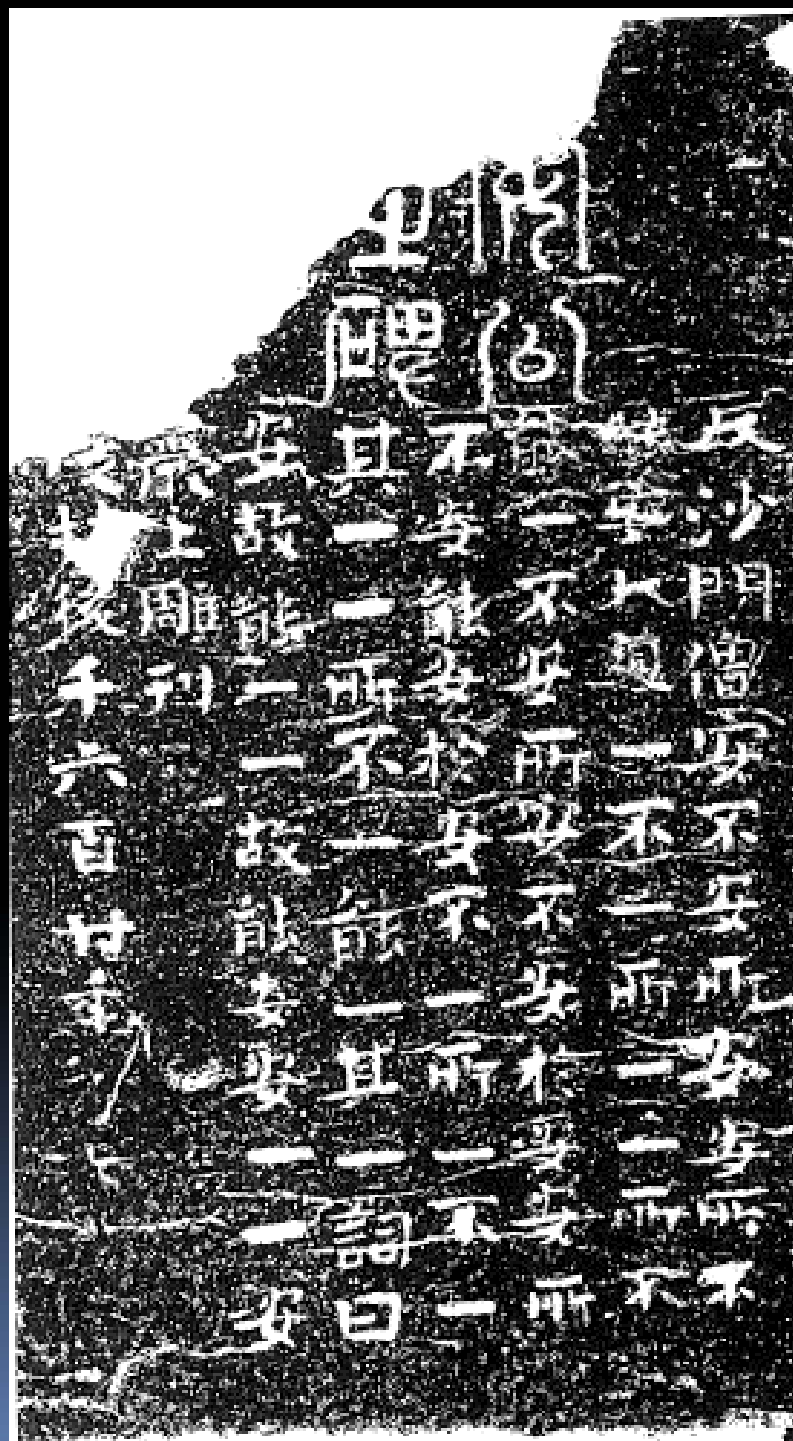 閔公
之碑
沙門僧安不安所安安所不
安大道一不一所一一所不
一不安所安不安於安安所
不安能安於安不一所一不一
其一一所不一能一其一詞曰
安故能一一故能安安一一安
巖上雕刊
後千六百廿年